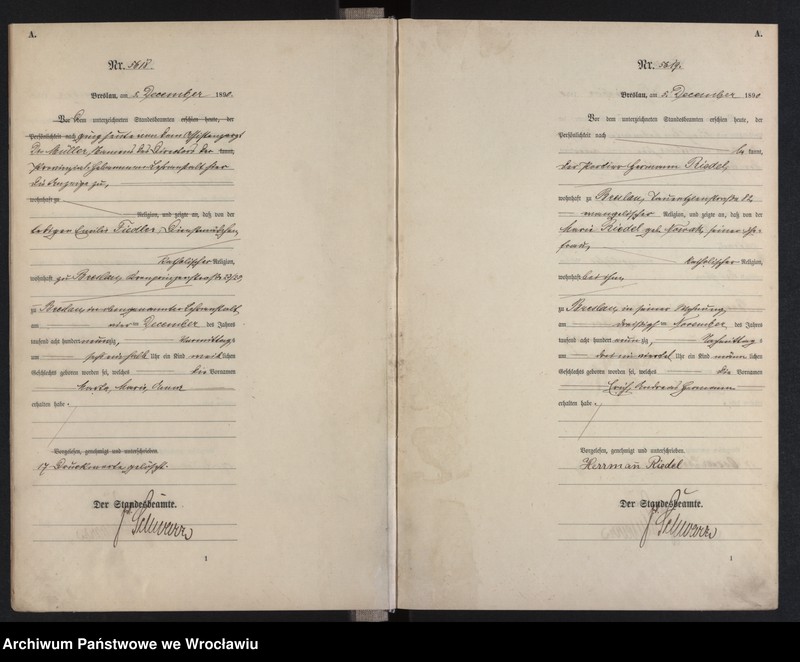 A.
Nr. 5618.
Breslau, am 5. December 1890.
Vor dem unterzeichneten Standesbeamten erschien heute, der
Persönlichkeit nach ging heute von dem Assistenzarzt
Dr. Müller Namens des Directors der
Provinzial-Hebammen-Lehranstalt hier
die Anzeige zu,
wohnhaft zu
Religion, und zeigte an, daß von der
ledigen Emilie Fiedler, Dienstmädchen,
katholischer Religion,
wohnhaft zu Breslau,
zu Breslau, in obengenannter Lehranstalt
am December des Jahres
tausend acht hundert neunzig, Vormittags
um Uhr ein Kind weiblichen
Geschlechts geboren worden sei, welches die Vornamen
Marie
erhalten habe.
Vorgelesen, genehmigt und unterschrieben.
17 Druckworte gelöscht.
Der Standesbeamte.
Schwarz
1
A.
Nr. 5619.
Breslau, am 5. December 1890
Vor dem unterzeichneten Standesbeamten erschien heute, der
Persönlichkeit nach
be kannt,
der Portier Hermann Riedel,
wohnhaft zu Breslau, Tauentzienstraße
evangelischer Religion, und zeigte an, daß von der
Marie Riedel geb. Nowak, seiner Ehe-
frau,
katholischer Religion,
wohnhaft bei ihm,
zu Breslau, in seiner Wohnung,
am dreißigsten November des Jahres
tausend acht hundert neunzig, Nachmittags
um drei ein viertel Uhr ein Kind männ lichen
Geschlechts geboren worden sei, welches die Vornamen
Erich Andreas Hermann
erhalten habe.
Vorgelesen, genehmigt und unterschrieben.
Herrmañ Riedel
Der Standesbeamte.
Schwarz
1
Archiwum Państwowe we Wrocławiu